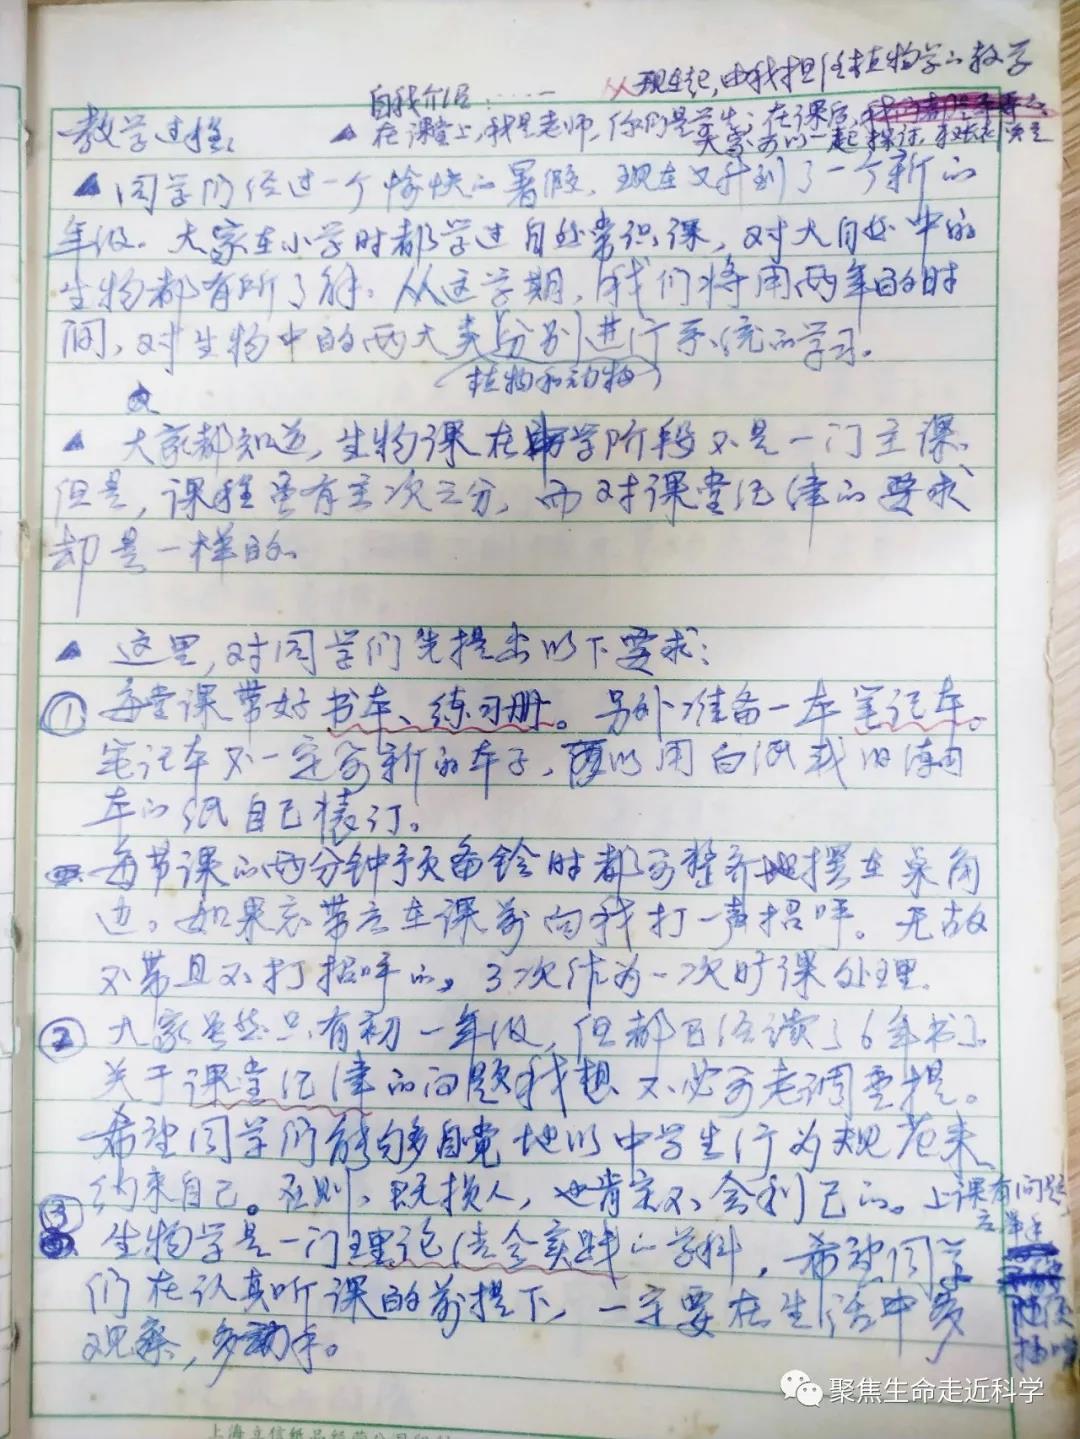 从现在起,由我担任植物学的教学
自我介绍:……
教学过程:
▲在课堂上,我是老师,你们是学生;在课后,我
大家可以一起探讨,
▲同学们经过一个愉快的暑假,现在又升到了一个新的
年级。大家在小学时都学过自然常识课,对大自然中的
生物都有所了解。从这学期,我们将用两年的时
间,对生物中的两大类分别进行系统的学习。
(植物和动物)
▲大家都知道,生物课在中学阶段不是一门主课。
但是,课程虽有主次之分,而对课堂纪律的要求
却是一样的。
▲这里,对同学们先提出以下要求:
①每堂课带好书本、练习册。另外准备一本笔记本。
笔记本不一定要新的本子,可以用白纸或旧簿
本的纸自己装订。
每节课的两分钟预备铃时都要整齐地摆在桌角
边。如果忘带应在课前向我打一声招呼。无故
不带且不打招呼的,3次作为一次旷课处理。
②大家虽然只有初一年级,但都已经读了6年书了
关于课堂纪律的问题我想不必要老调重提。
希望同学们能够自觉地以中学生行为规范来
约束自己。否则,既损人,也肯定不会利己的。上课有问题
应举手
随便
插嘴
③生物学是一门理论结合实践的学科,希望同学
们在认真听课的前提下,一定要在生活中多
观察,多动手。
聚焦生命走近科学